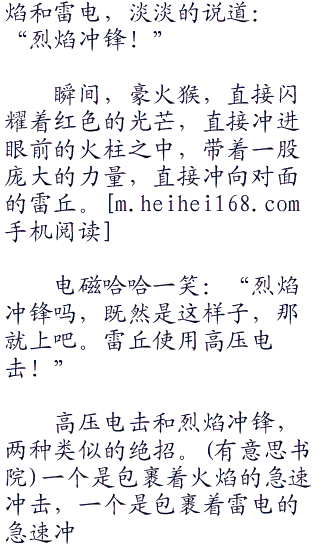 焰和雷电，淡淡的说道：
“烈焰冲锋！”
瞬间，豪火猴，直接闪
耀着红色的光芒，直接冲进
眼前的火柱之中，带着一股
庞大的力量，直接冲向对面
的雷丘。[m.heihei168.com
手机阅读]
电磁哈哈一笑：“烈焰
冲锋吗，既然是这样子，那
就上吧。雷丘使用高压电
击！”
高压电击和烈焰冲锋，
两种类似的绝招。(有意思书
院)一个是包裹着火焰的急速
冲击，一个是包裹着雷电的
急速冲